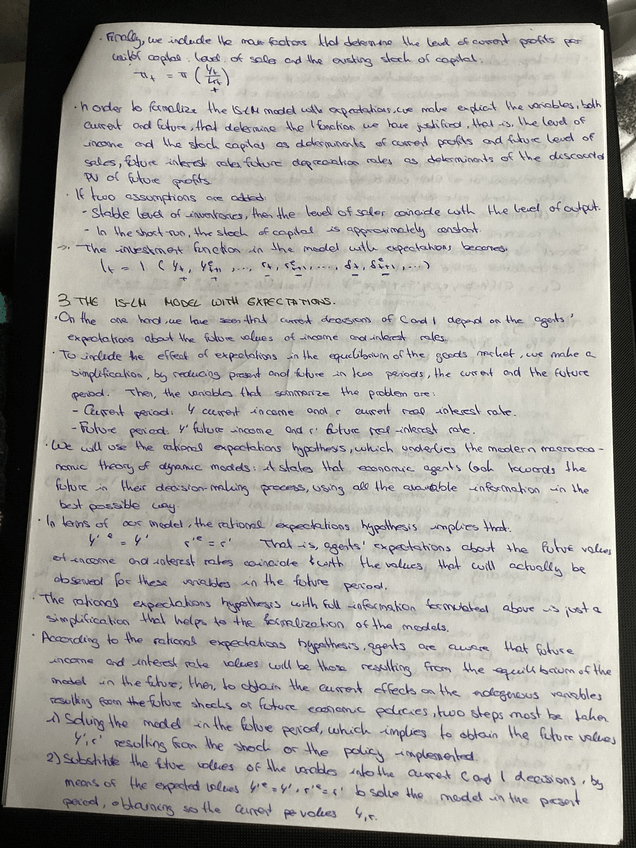 · Finally, we include the main factors that determine the level of current profits per
unit of capital: level of sales and the existing stock of capital:
πt = π (Yt/Kt)
+
· In order to formalize the IS-LM model with expectations, we make explicit the variables, both
current and future, that determine the I function we have justified, that is, the level of
income and the stock capital as determinants of current profits and future level of
sales, future interest rates future depreciation rates as determinants of the discounted
PV of future profits.
· If two assumptions are added:
- Stable level of inventories, then the level of sales coincide with the level of output.
- In the short-run, the stock of capital is approximately constant.
→ The investment function in the model with expectations becomes:
It = I (Yt, Yet+1, ..., rt, ret+1, ..., δt, δet+1, ...)
+ + - - - -
3 THE IS-LM MODEL WITH EXPECTATIONS.
· On the one hand, we have seen that current decisions of C and I depend on the agents'
expectations about the future values of income and interest rates.
· To include the effect of expectations in the equilibrium of the goods market, we make a
simplification, by reducing present and future in two periods, the current and the future
period. Then, the variables that summarize the problem are:
- Current period: Y current income and r current real interest rate.
- Future period: Y' future income and r' future real interest rate.
· We will use the rational expectations hypothesis, which underlies the modern macroeco-
nomic theory of dynamic models: it states that economic agents look towards the
future in their decision-making process, using all the available information in the
best possible way.
· In terms of our model, the rational expectations hypothesis implies that:
Y'e = Y' r'e = r' That is, agents' expectations about the future values
of income and interest rates coincide with the values that will actually be
observed for these variables in the future period.
· The rational expectations hypothesis with full information formulated above is just a
simplification that helps to the formalization of the models.
· According to the rational expectations hypothesis, agents are aware that future
income and interest rate values will be those resulting from the equilibrium of the
model in the future; then, to obtain the current effects on the endogenous variables
resulting from the future shocks or future economic policies, two steps must be taken
1) Solving the model in the future period, which implies to obtain the future values
Y', r' resulting from the shock or the policy implemented.
2) Substitute the future values of the variables into the current C and I decisions, by
means of the expected values Y'e = Y', r'e = r' to solve the model in the present
period, obtaining so the current values Y, r.